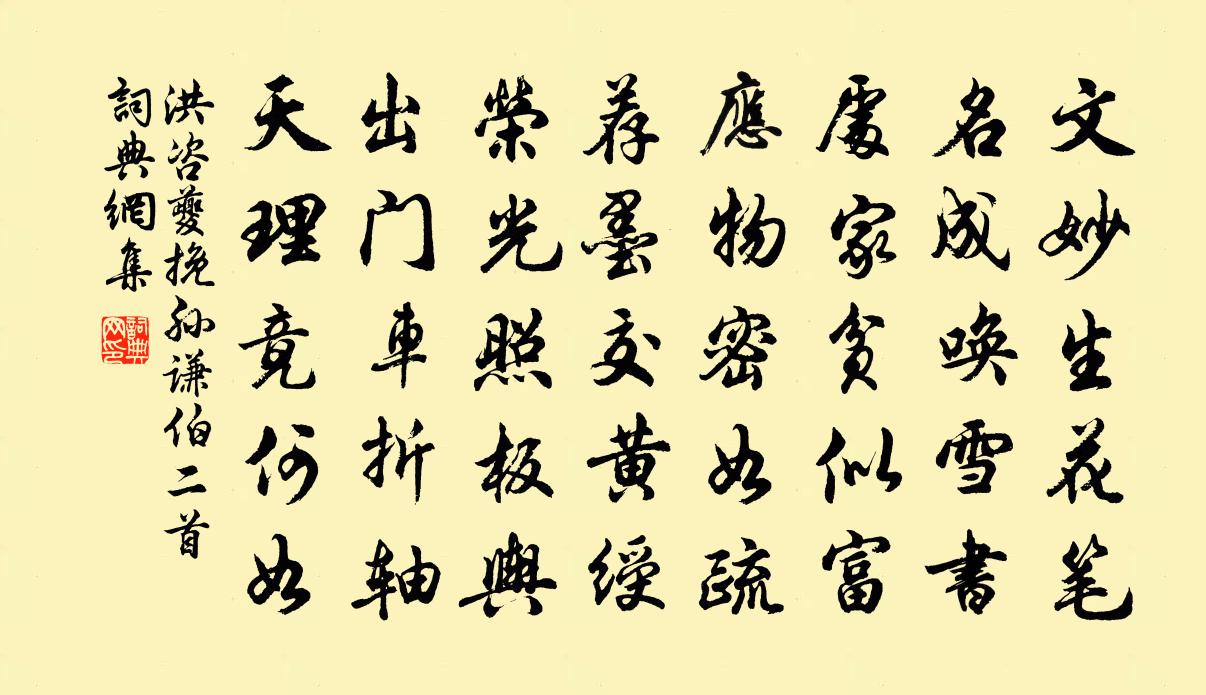 文妙生花笔
名成唤雪書
處家貧似富
應物密如疏
荐墨交黄綬
榮光照板輿
出门車折轴
天理竟何如
洪咨夔挽孙谦伯二首
詞典網集
詞典网印